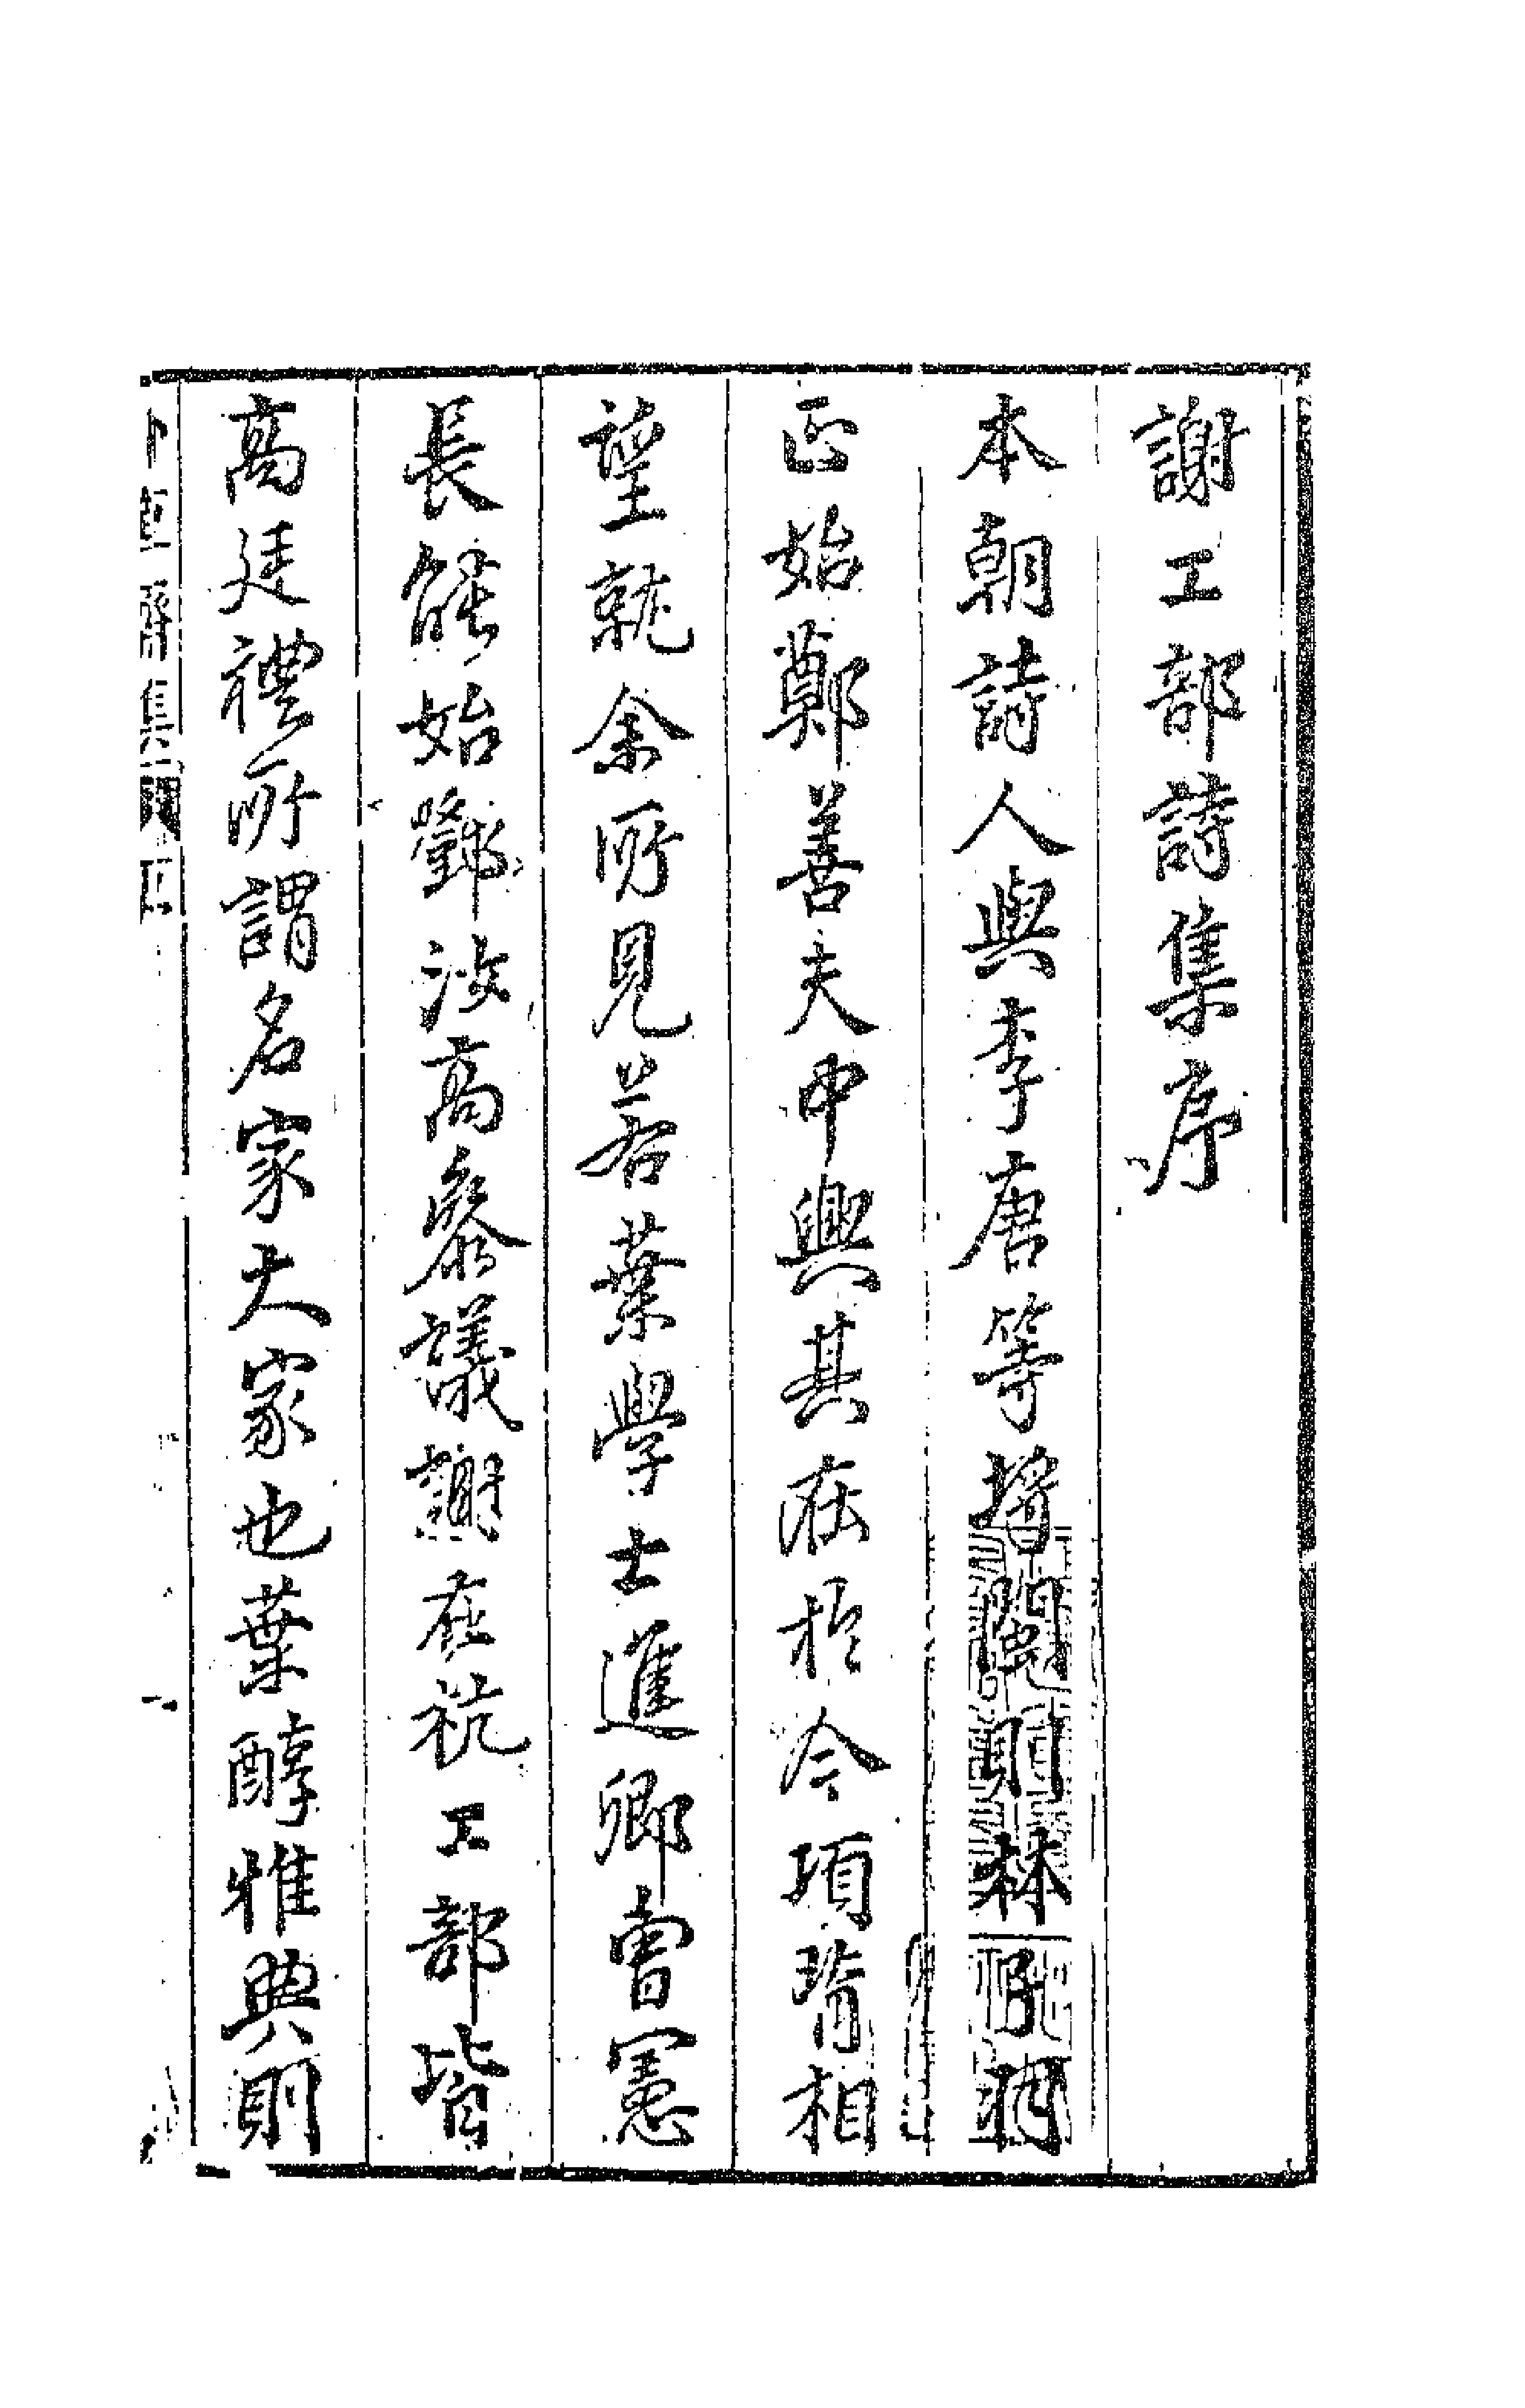 謝工部詩集序
本朝詩人與李唐等閩則林子羽
正始鄭善夫中興其在於今項背相
望就余所見若葉學士進卿曹憲
長能始鄧汝高參議謝在杭工部皆
高廷禮所謂名家大家也葉醇雅典則